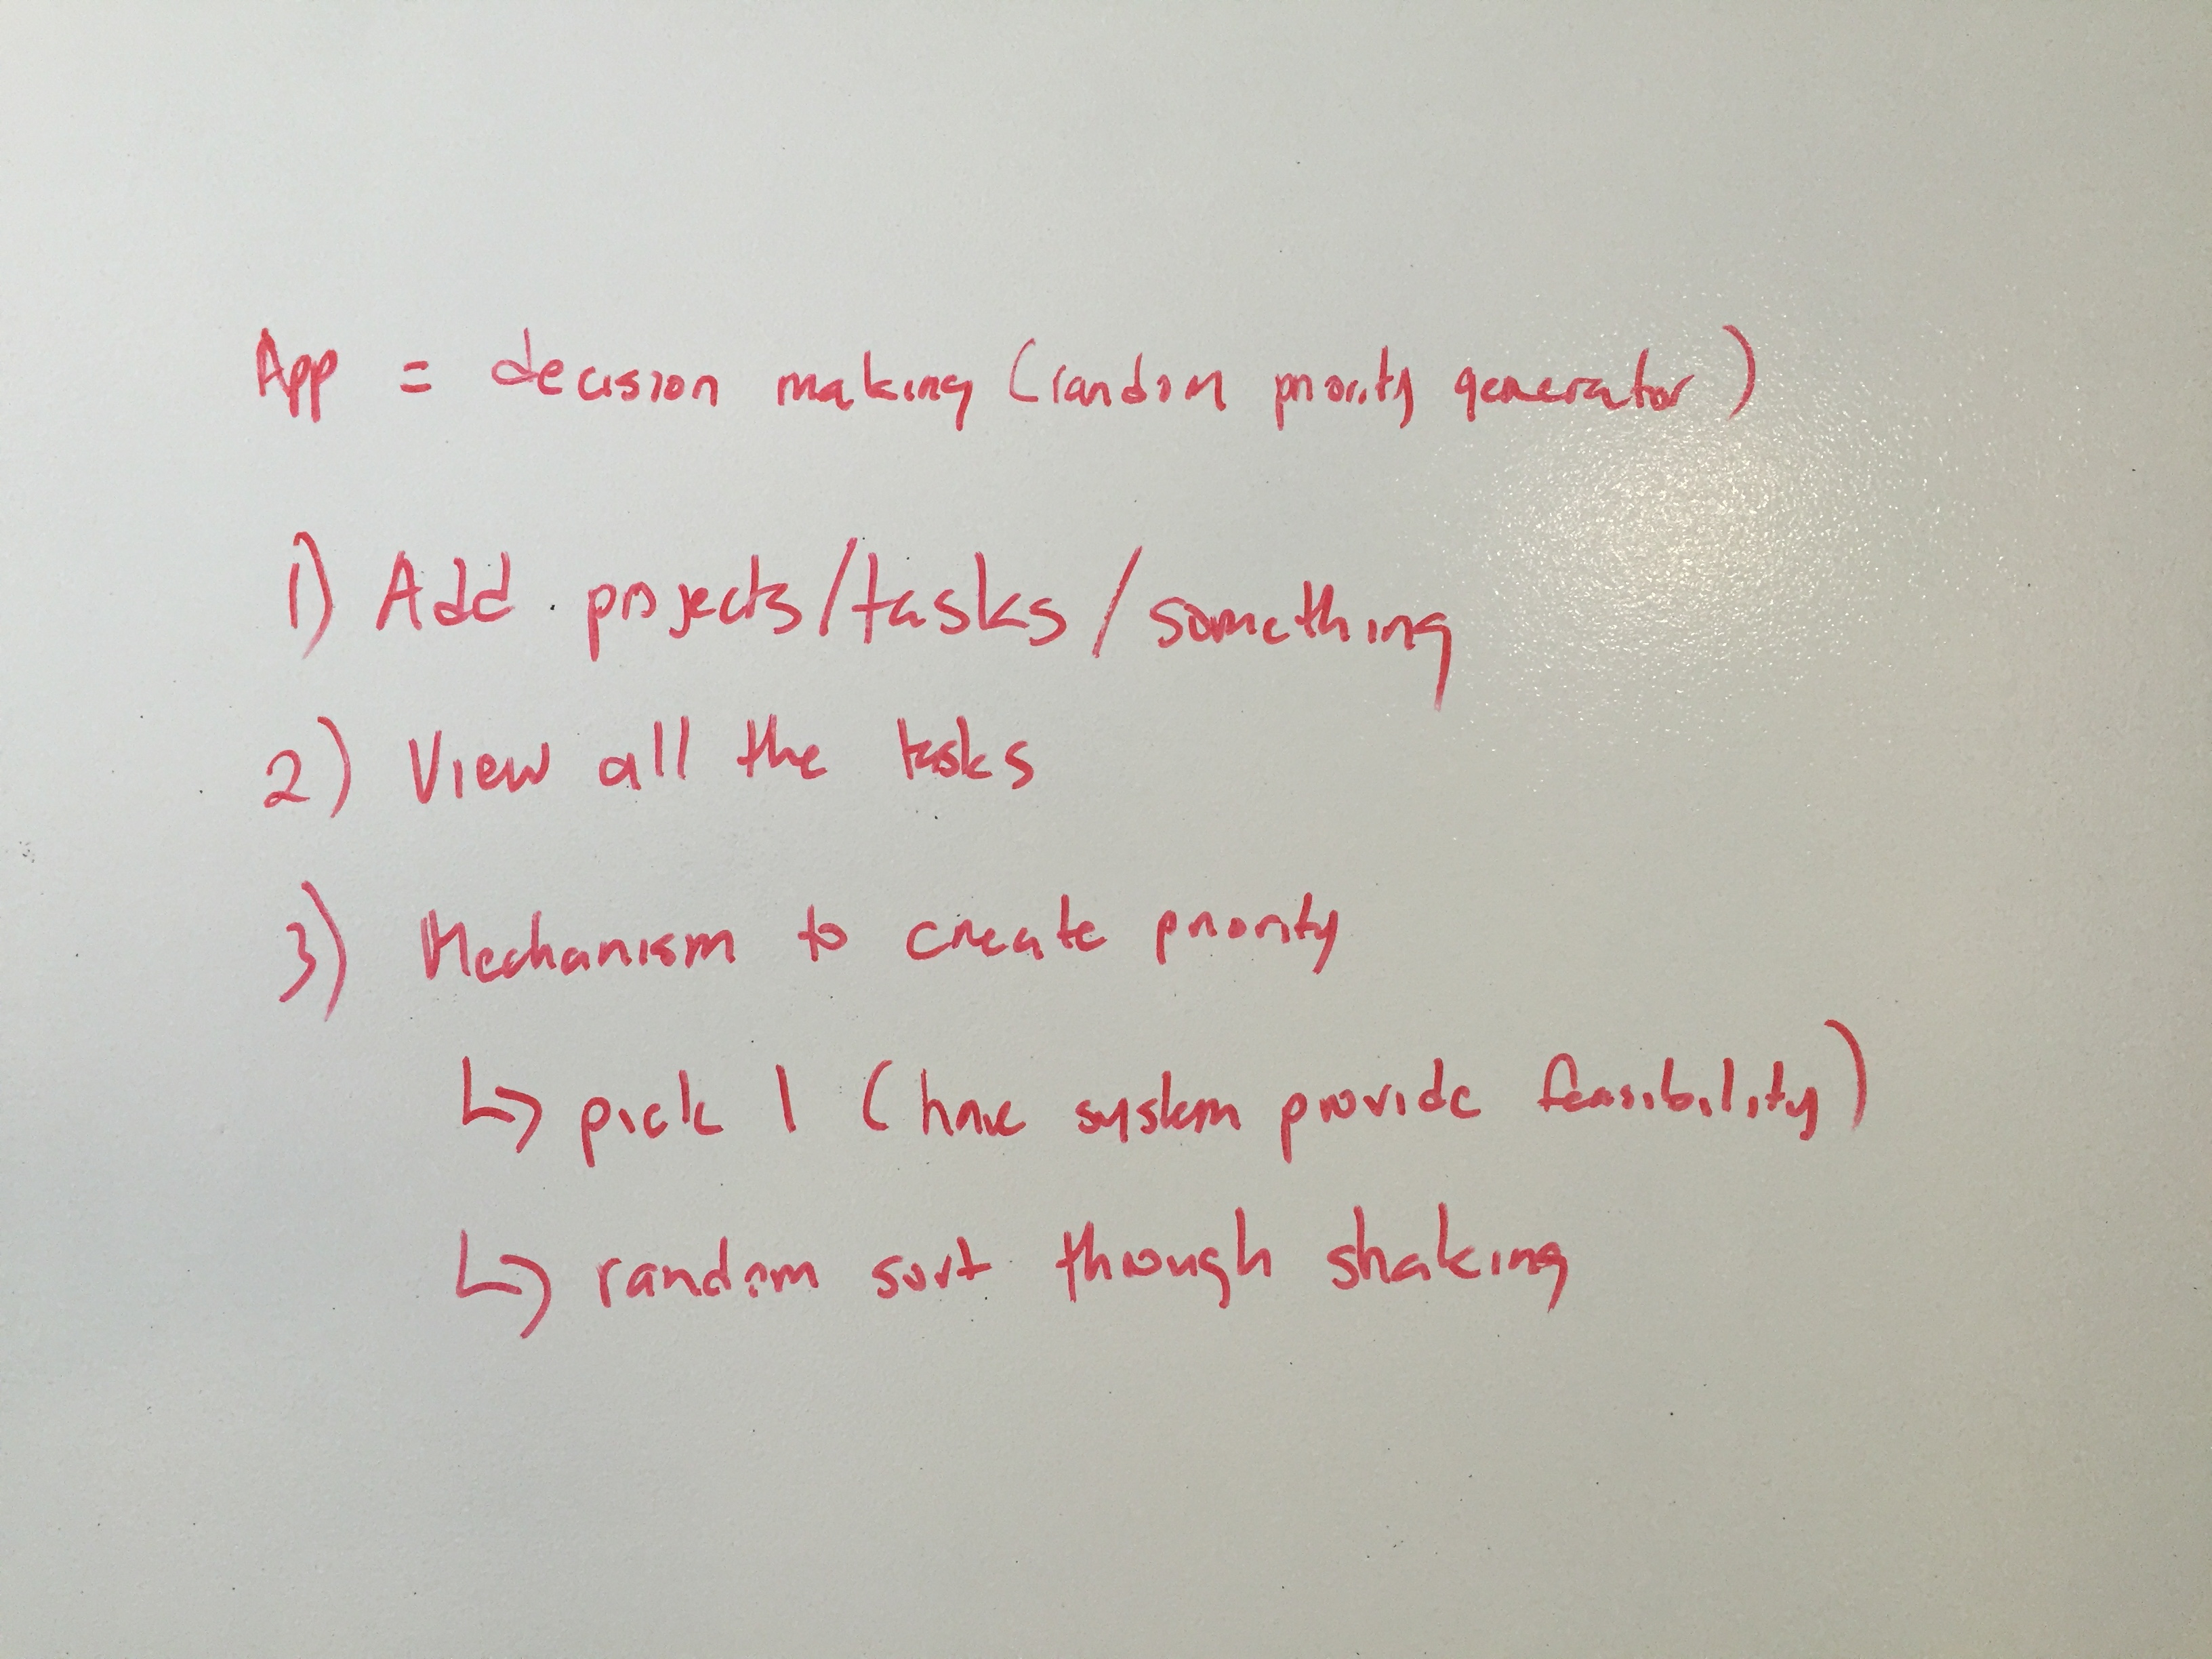 App = decision making (random priority generator)
1) Add projects/tasks/something
2) View all the tasks
3) Mechanism to create priority
↳ pick 1 (have system provide feasibility)
↳ random sort through shaking